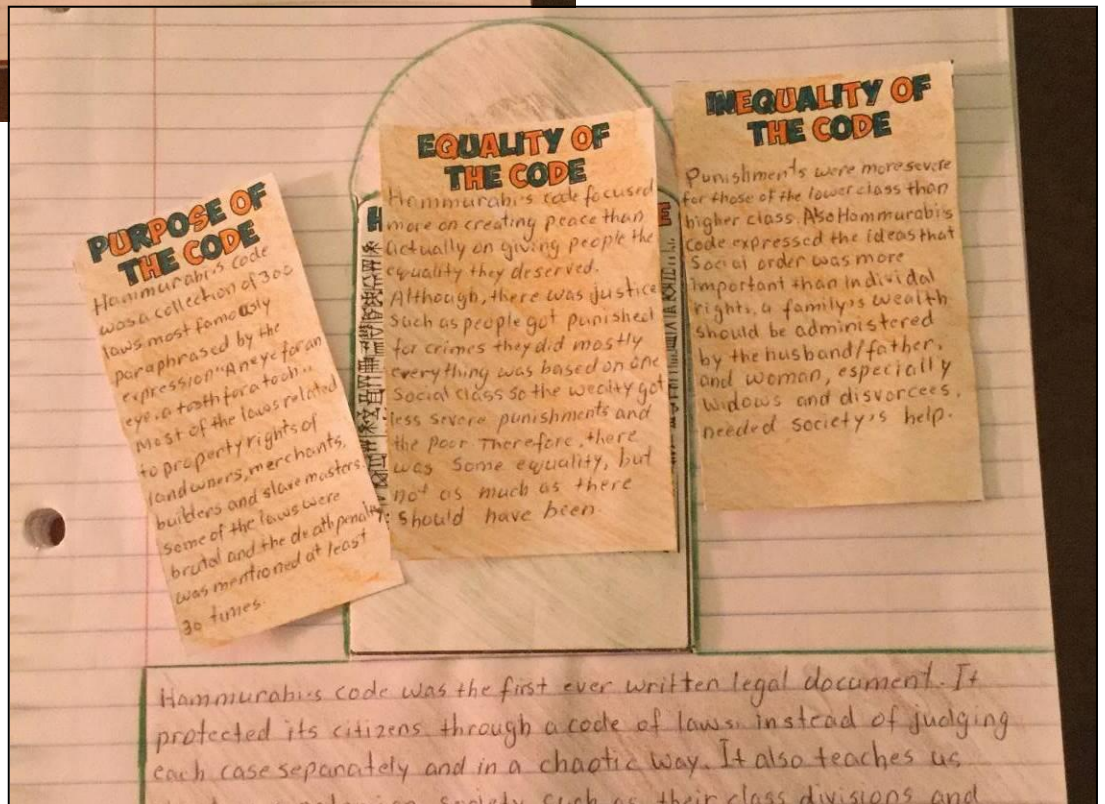 PURPOSE OF
THE CODE
Hammurabi's code
was a collection of 300
laws most famously
paraphrased by the
expression "An eye for an
eye, a tooth for a tooh".
Most of the laws related
to property rights of
landowners, merchants,
builders and slave masters.
some of the laws were
brutal and the death penalty
was mentioned at least
30 times.
EQUALITY OF
THE CODE
Hammurabi's code focused
more on creating peace than
actually on giving people the
equality they deserved.
Although, there was justice
such as people got punished
for crimes they did mostly
everything was based on one
social class so the wealty got
less severe punishments and
the poor Therefore, there
was some equality, but
not as much as there
should have been
INEQUALITY OF
THE CODE
Punishments were more severe
for those of the lower class than
higher class. Also Hammurabi's
code expressed the ideas that
Social order was more
important than individal
rights, a family's wealth
should be administered
by the husband/father,
and woman, especially
widows and disvorcees,
needed society's help.
H
E
Hammurabi's code was the first ever written legal document. It
protected its citizens through a code of laws, instead of judging
each case separately and in a chaotic way. It also teaches us
society such as their class divisions and